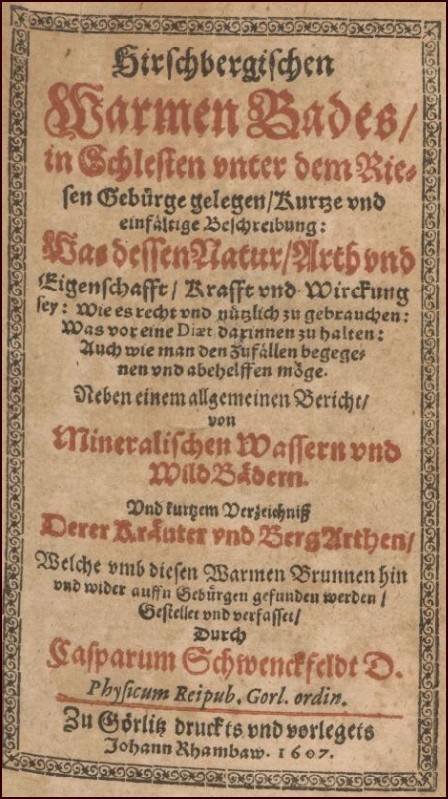 Hirschbergischen
Warmen Bades/
in Schlesien vnter dem Rie-
sen Gebürge gelegen/Kurtze vnd
einfältige Beschreibung:
Was dessen Natur/Arth vnd
Eigenschafft/ Krafft vnd Wirckung
sey: Wie es recht vnd nützlich zu gebrauchen:
Was vor eine Diæt darinnen zu halten:
Auch wie man den Zufällen begege-
nen vnd abehelffen möge.
Neben einem allgemeinen Bericht/
von
Mineralischen Wassern vnd
Wild Bädern.
Vnd kurtzem Verzeichniß
Derer Kräuter vnd Berg Arthen/
Welche vmb diesen Warmen Brunnen hin
vnd wider auffn Gebürgen gefunden werden/
Gestellet vnd verfasset/
Durch
Casparum Schwenckfeldt D.
Physicum Reipub. Gorl. ordin.
Zu Görlitz druckts vnd vorlegets
Johann Rhambaw. 1607.